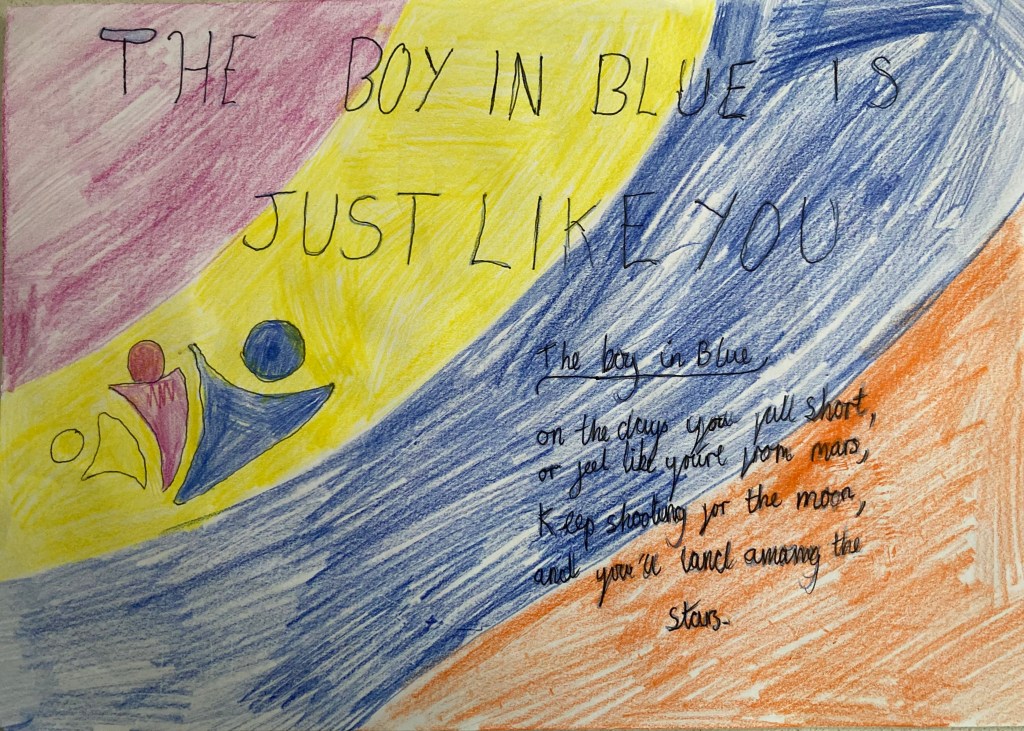 THE BOY IN BLUE IS
JUST LIKE YOU
The boy in Blue
on the days you fall short,
or feel like you're from mars,
Keep shooting for the moon,
and you'll land among the
stars.